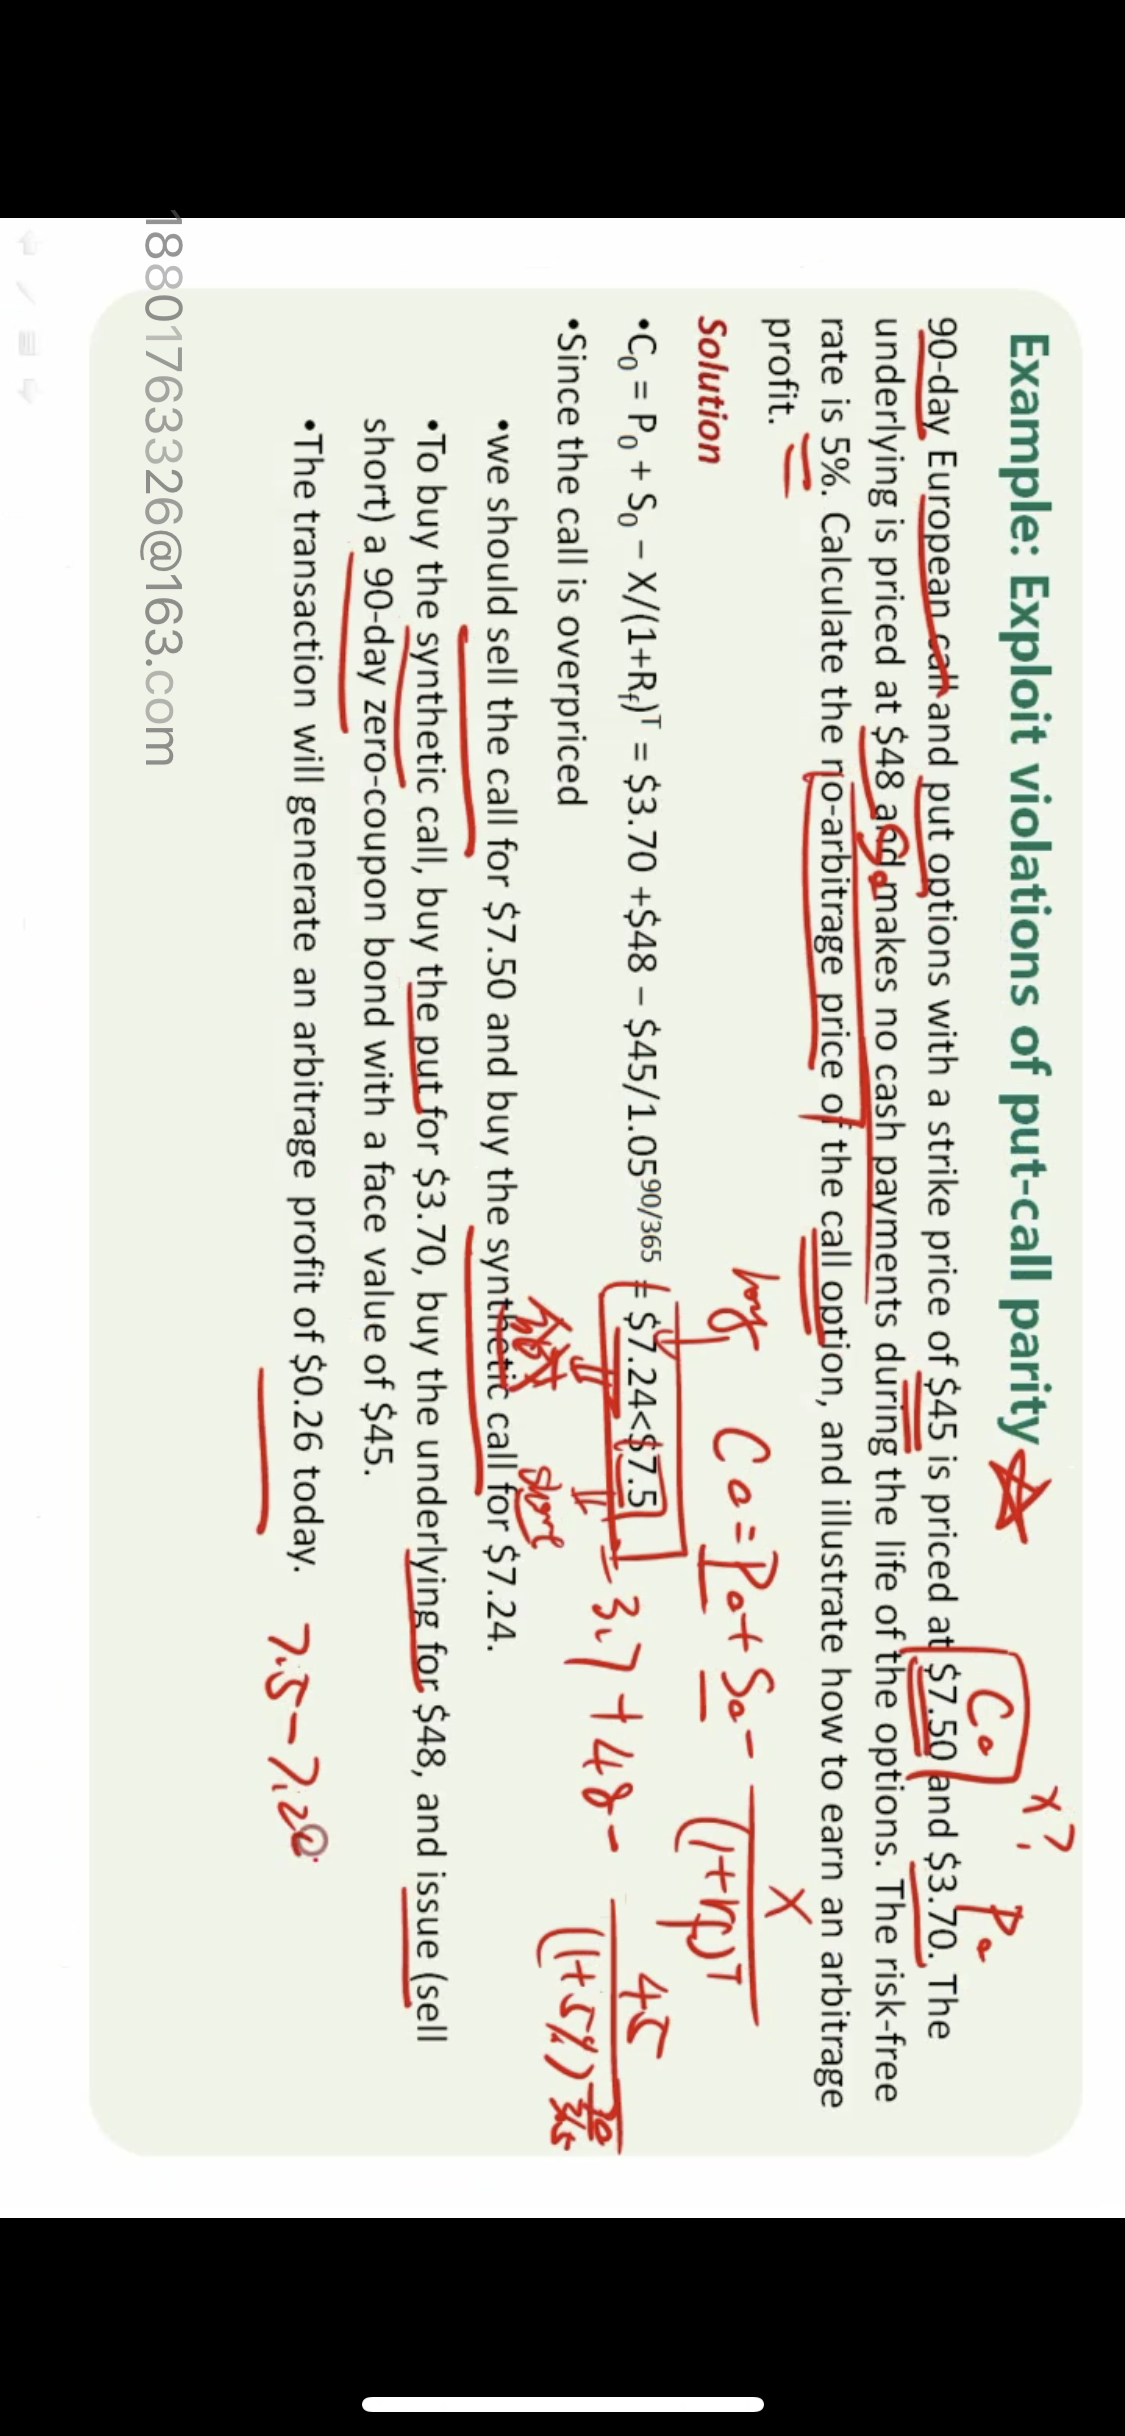 Example: Exploit violations of put-call parity
x?
C₀
P₀
90-day European call and put options with a strike price of $45 is priced at $7.50 and $3.70. The
underlying is priced at $48 and makes no cash payments during the life of the options. The risk-free
S₀
rate is 5%. Calculate the no-arbitrage price of the call option, and illustrate how to earn an arbitrage
profit.
Solution
long
C₀ = P₀ + S₀ - X/(1+rf)ᵀ
•C₀ = P₀ + S₀ – X/(1+Rf)ᵀ = $3.70 +$48 – $45/1.05^90/365 = $7.24<$7.5
= 3.7 + 48 - 45/(1+5%)^90/365
•Since the call is overpriced
short
•we should sell the call for $7.50 and buy the synthetic call for $7.24.
•To buy the synthetic call, buy the put for $3.70, buy the underlying for $48, and issue (sell
short) a 90-day zero-coupon bond with a face value of $45.
•The transaction will generate an arbitrage profit of $0.26 today.
7.5-7.2
18801763326@163.com